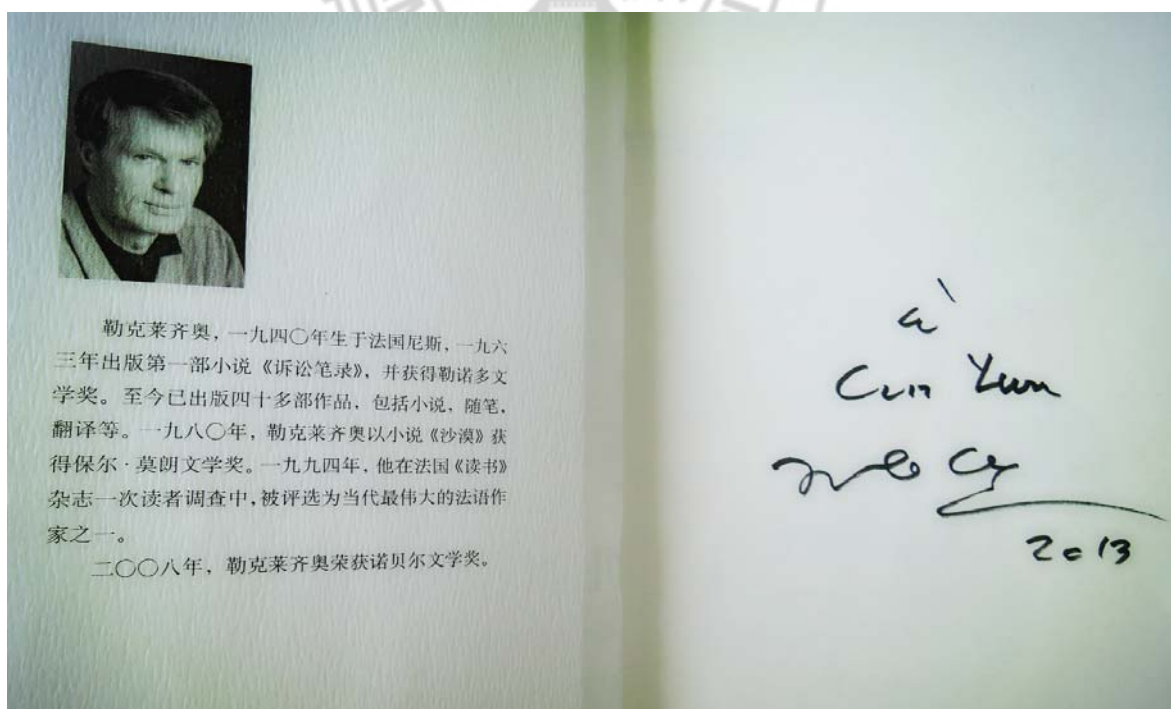 勒克莱齐奥，一九四〇年生于法国尼斯，一九六
三年出版第一部小说《诉讼笔录》，并获得勒诺多文
学奖。至今已出版四十多部作品，包括小说，随笔，
翻译等。一九八〇年，勒克莱齐奥以小说《沙漠》获
得保尔·莫朗文学奖。一九九四年，他在法国《读书》
杂志一次读者调查中，被评选为当代最伟大的法语作
家之一。
二〇〇八年，勒克莱齐奥荣获诺贝尔文学奖。
à
Cun Yun
2013